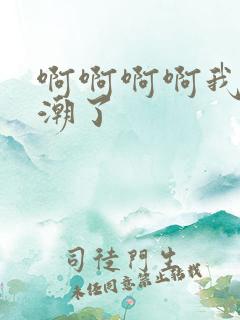 啊啊啊啊我
潮了
司徒門生
未经同意禁止转载